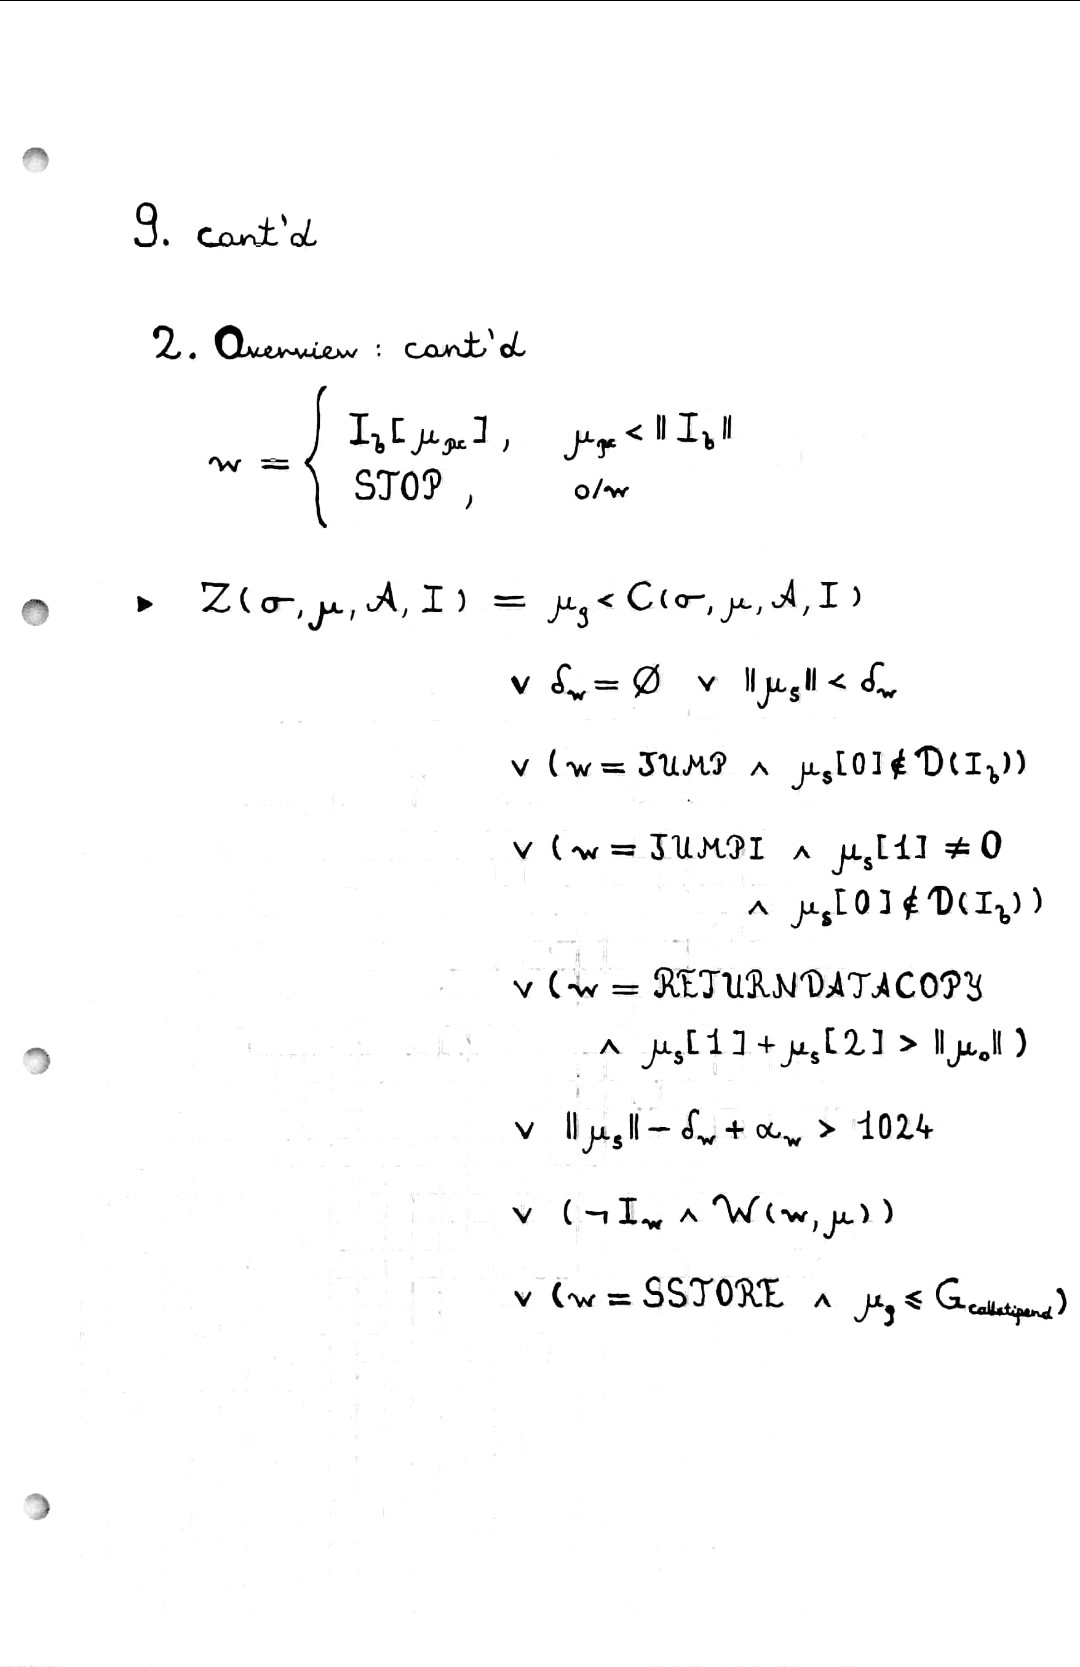 9. cont'd
2. Overview : cont'd
w = { I_b[μ_pc], μ_pc < ‖I_b‖
STOP, o/w
▸ Z(σ, μ, A, I) = μ_g < C(σ, μ, A, I)
∨ δ_w = ∅ ∨ ‖μ_s‖ < δ_w
∨ (w = JUMP ∧ μ_s[0] ∉ D(I_b))
∨ (w = JUMPI ∧ μ_s[1] ≠ 0
∧ μ_s[0] ∉ D(I_b))
∨ (w = RETURNDATACOPY
∧ μ_s[1] + μ_s[2] > ‖μ_o‖)
∨ ‖μ_s‖ − δ_w + α_w > 1024
∨ (¬I_w ∧ W(w, μ))
∨ (w = SSTORE ∧ μ_g ⩽ G_callstipend)